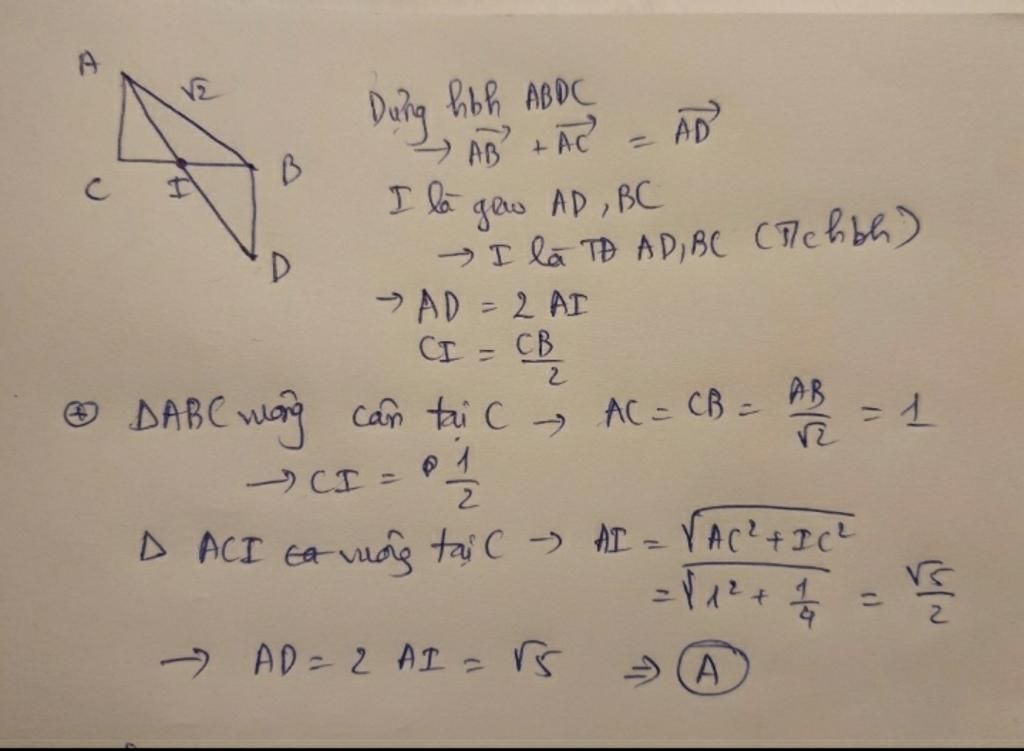 A
√2
C
I
B
D
Dựng hbh ABDC
→ \overrightarrow{AB} + \overrightarrow{AC} = \overrightarrow{AD}
I là giao AD, BC
→ I là TĐ AD, BC (T/c hbh)
→ AD = 2 AI
CI = CB/2
⊕ ΔABC vuông cân tại C → AC = CB = AB/√2 = 1
→ CI = 1/2
Δ ACI vuông tại C → AI = √(AC² + IC²)
= √(1² + 1/4) = √5/2
→ AD = 2 AI = √5 ⇒ A